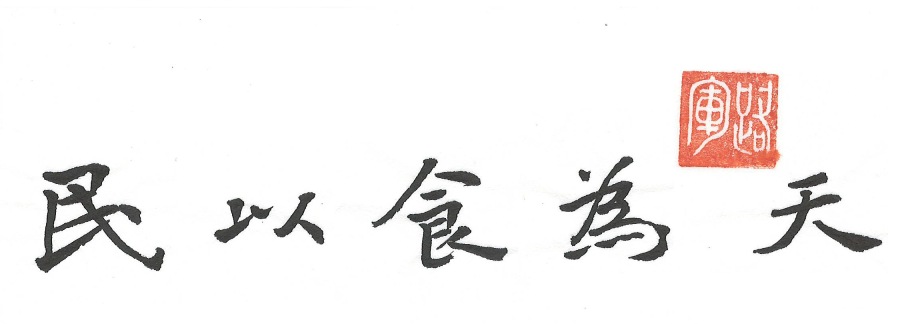 民以食為天
路軍